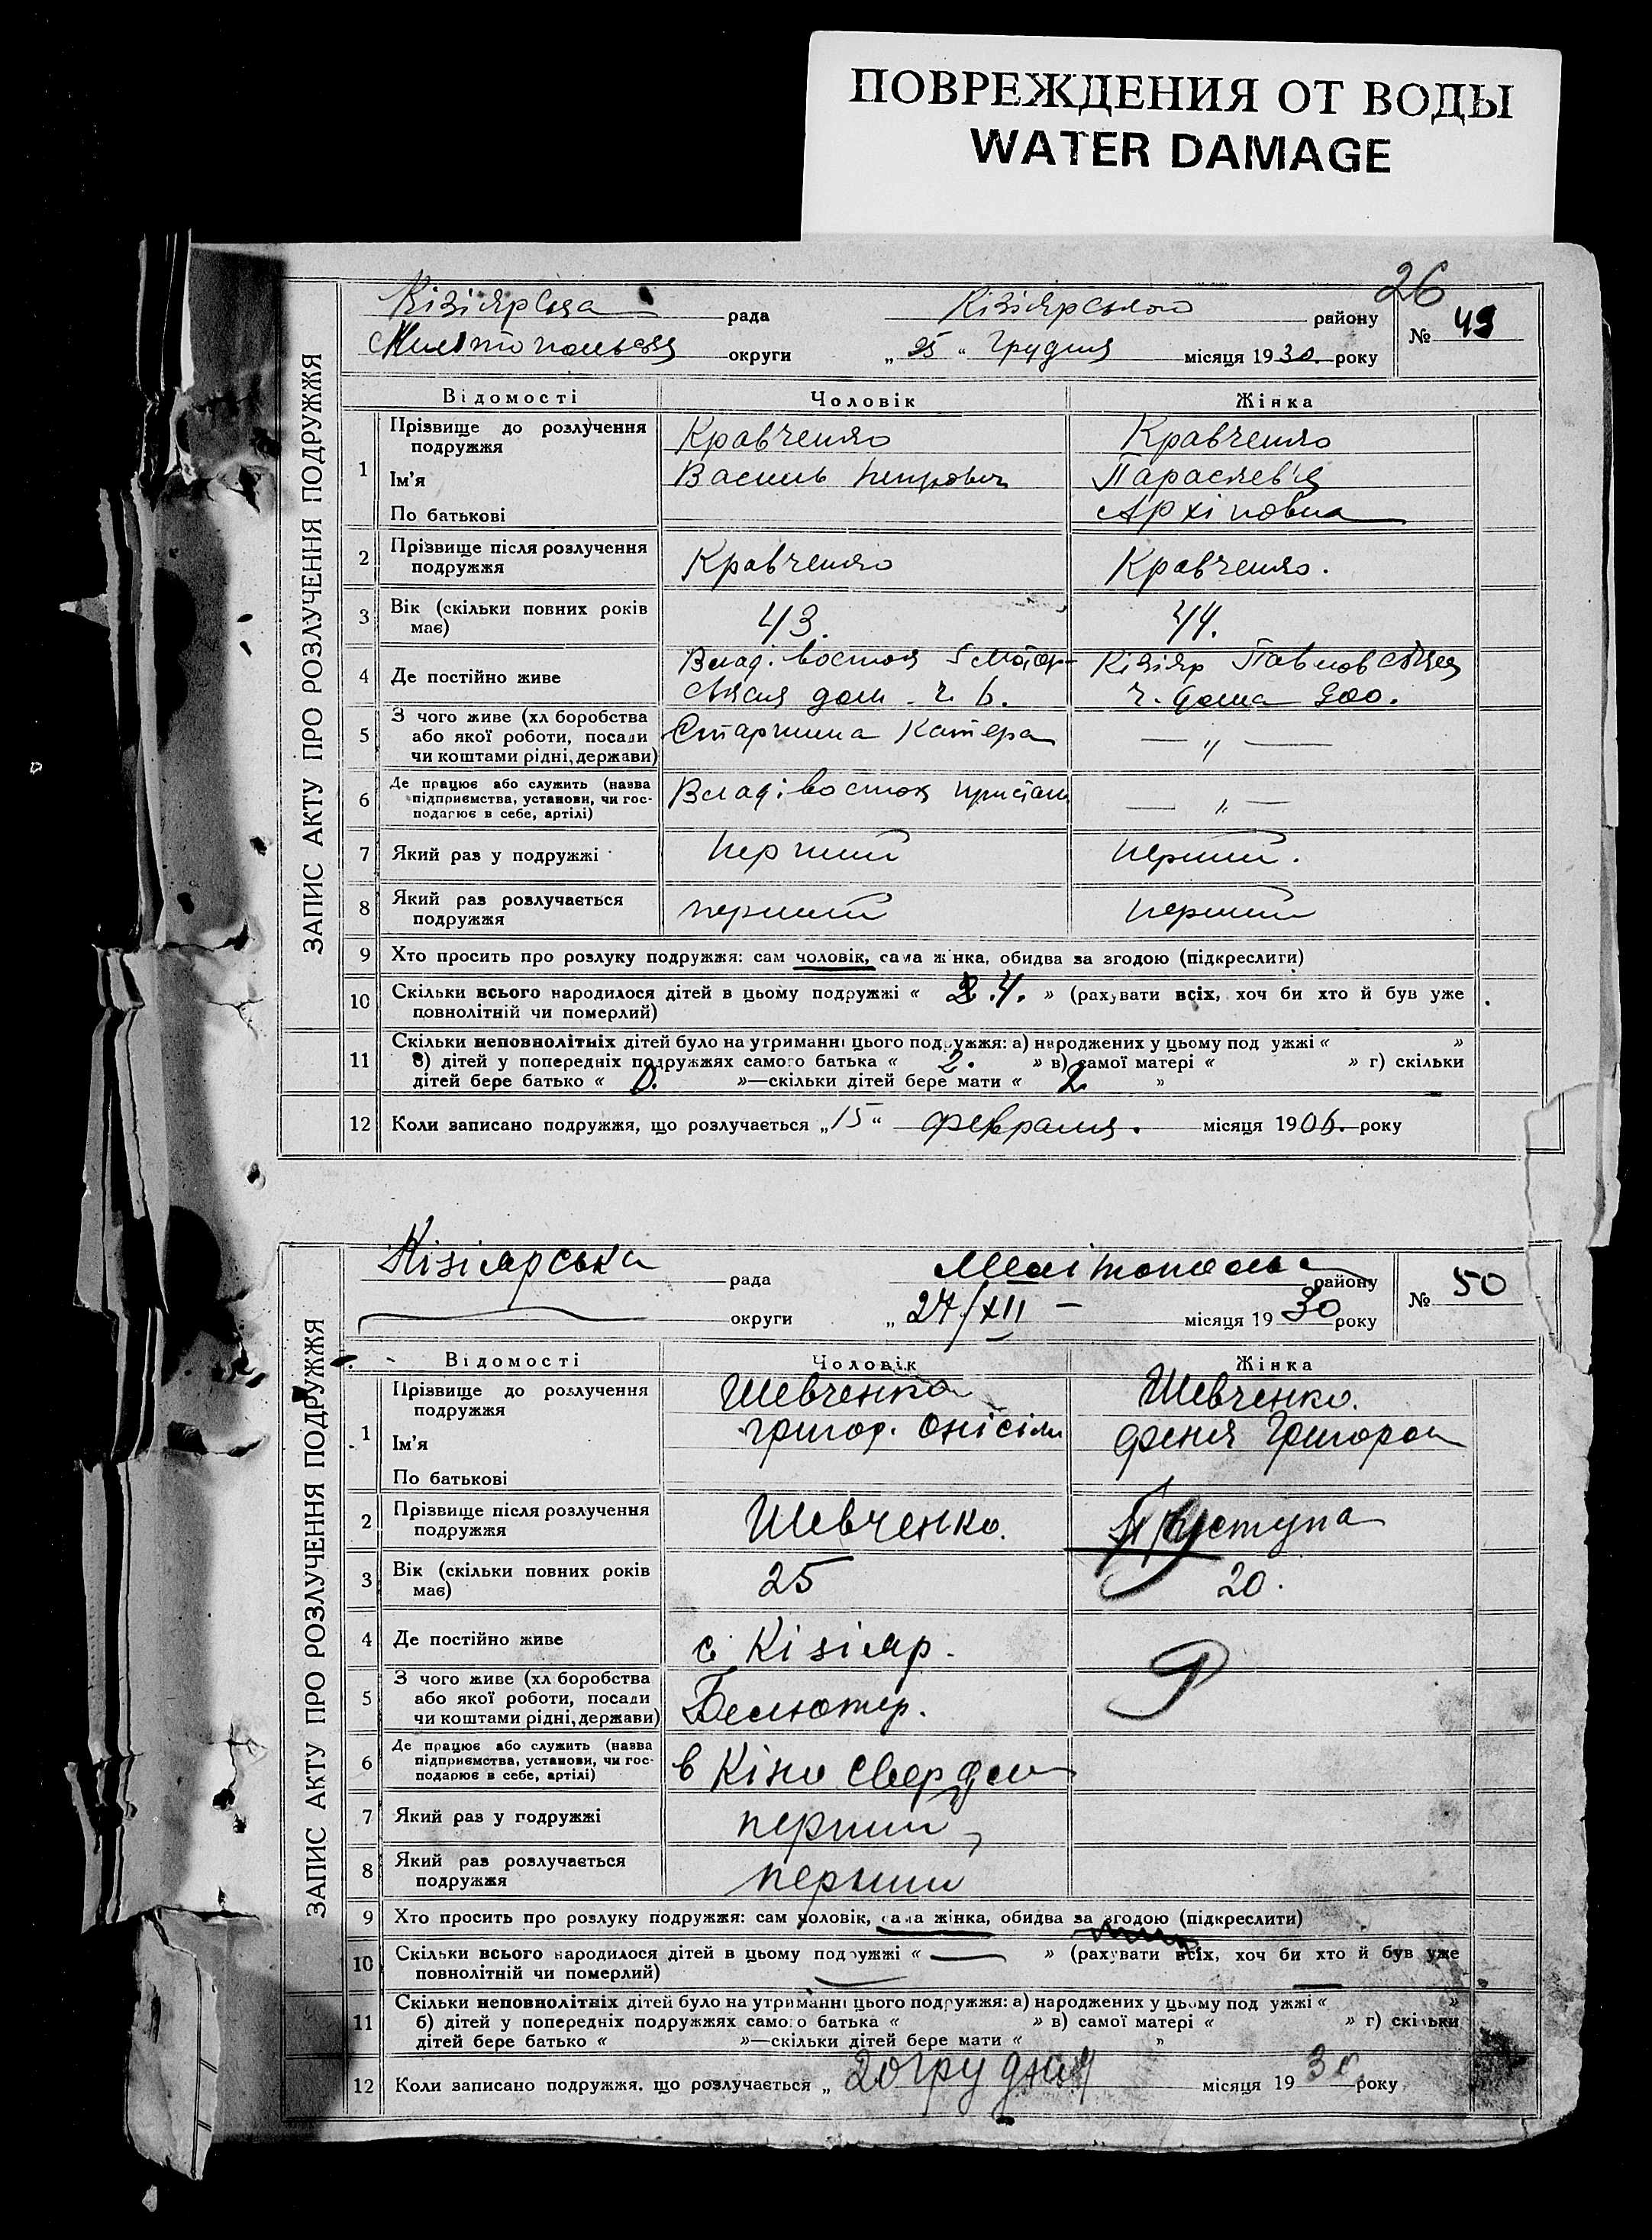 ПОВРЕЖДЕНИЯ ОТ ВОДЫ
WATER DAMAGE
26
ЗАПИС АКТУ ПРО РОЗЛУЧЕННЯ ПОДРУЖЖЯ
Кізіярська рада Кізіярського району № 49
округи „25“ Грудня місяця 1930 року
Відомості Чоловік Жінка
1 Прізвище до розлучення подружжя Кравченко Кравченко
Ім’я Василь Петрович Параскев'я
По батькові Архіповна
2 Прізвище після розлучення
подружжя Кравченко Кравченко.
3 Вік (скільки повних років
має) 43. 44.
4 Де постійно живе Владівосток Кізіяр
дом. ч. 6. ч. дома 900.
5 З чого живе (хл боробства
або якої роботи, посади
чи коштами рідні, держави) Старшина Катера — „ —
6 Де працює або служить (назва
підприємства, установи, чи гос-
подарює в себе, артілі) Владівосток пристань — „ —
7 Який раз у подружжі перший перший.
8 Який раз розлучається
подружжя перший перший
9 Хто просить про розлуку подружжя: сам чоловік, сама жінка, обидва за згодою (підкреслити)
10 Скільки всього народилося дітей в цьому подружжі « 4. » (рахувати всіх, хоч би хто й був уже
повнолітній чи померлий)
11 Скільки неповнолітніх дітей було на утриманні цього подружжя: а) народжених у цьому под ужжі « »
б) дітей у попередніх подружжях самого батька « 2. » в) самої матері « » г) скільки
дітей бере батько « 0. »—скільки дітей бере мати « 2 »
12 Коли записано подружжя, що розлучається „15“ февраля. місяця 1906. року
ЗАПИС АКТУ ПРО РОЗЛУЧЕННЯ ПОДРУЖЖЯ
Кізіярська рада району № 50
округи „ 27/XII — місяця 1930 року
Відомості Чоловік Жінка
1 Прізвище до розлучення
подружжя Шевченко Шевченко.
Ім’я Григор. Онісім Феня Григоров
По батькові
2 Прізвище після розлучення
подружжя Шевченко.
3 Вік (скільки повних років
має) 25 20.
4 Де постійно живе с. Кізіяр.
5 З чого живе (хл боробства
або якої роботи, посади
чи коштами рідні, держави)
6 Де працює або служить (назва
підприємства, установи, чи гос-
подарює в себе, артілі) в Кіно
7 Який раз у подружжі перший
8 Який раз розлучається
подружжя перший
9 Хто просить про розлуку подружжя: сам чоловік, сама жінка, обидва за згодою (підкреслити)
10 Скільки всього народилося дітей в цьому подружжі « — » (рахувати всіх, хоч би хто й був уже
повнолітній чи померлий)
11 Скільки неповнолітніх дітей було на утриманні цього подружжя: а) народжених у цьому под ужжі « »
б) дітей у попередніх подружжях самого батька « » в) самої матері « » г) скільки
дітей бере батько « »—скільки дітей бере мати « »
12 Коли записано подружжя, що розлучається „ 20 грудня місяця 1930 року